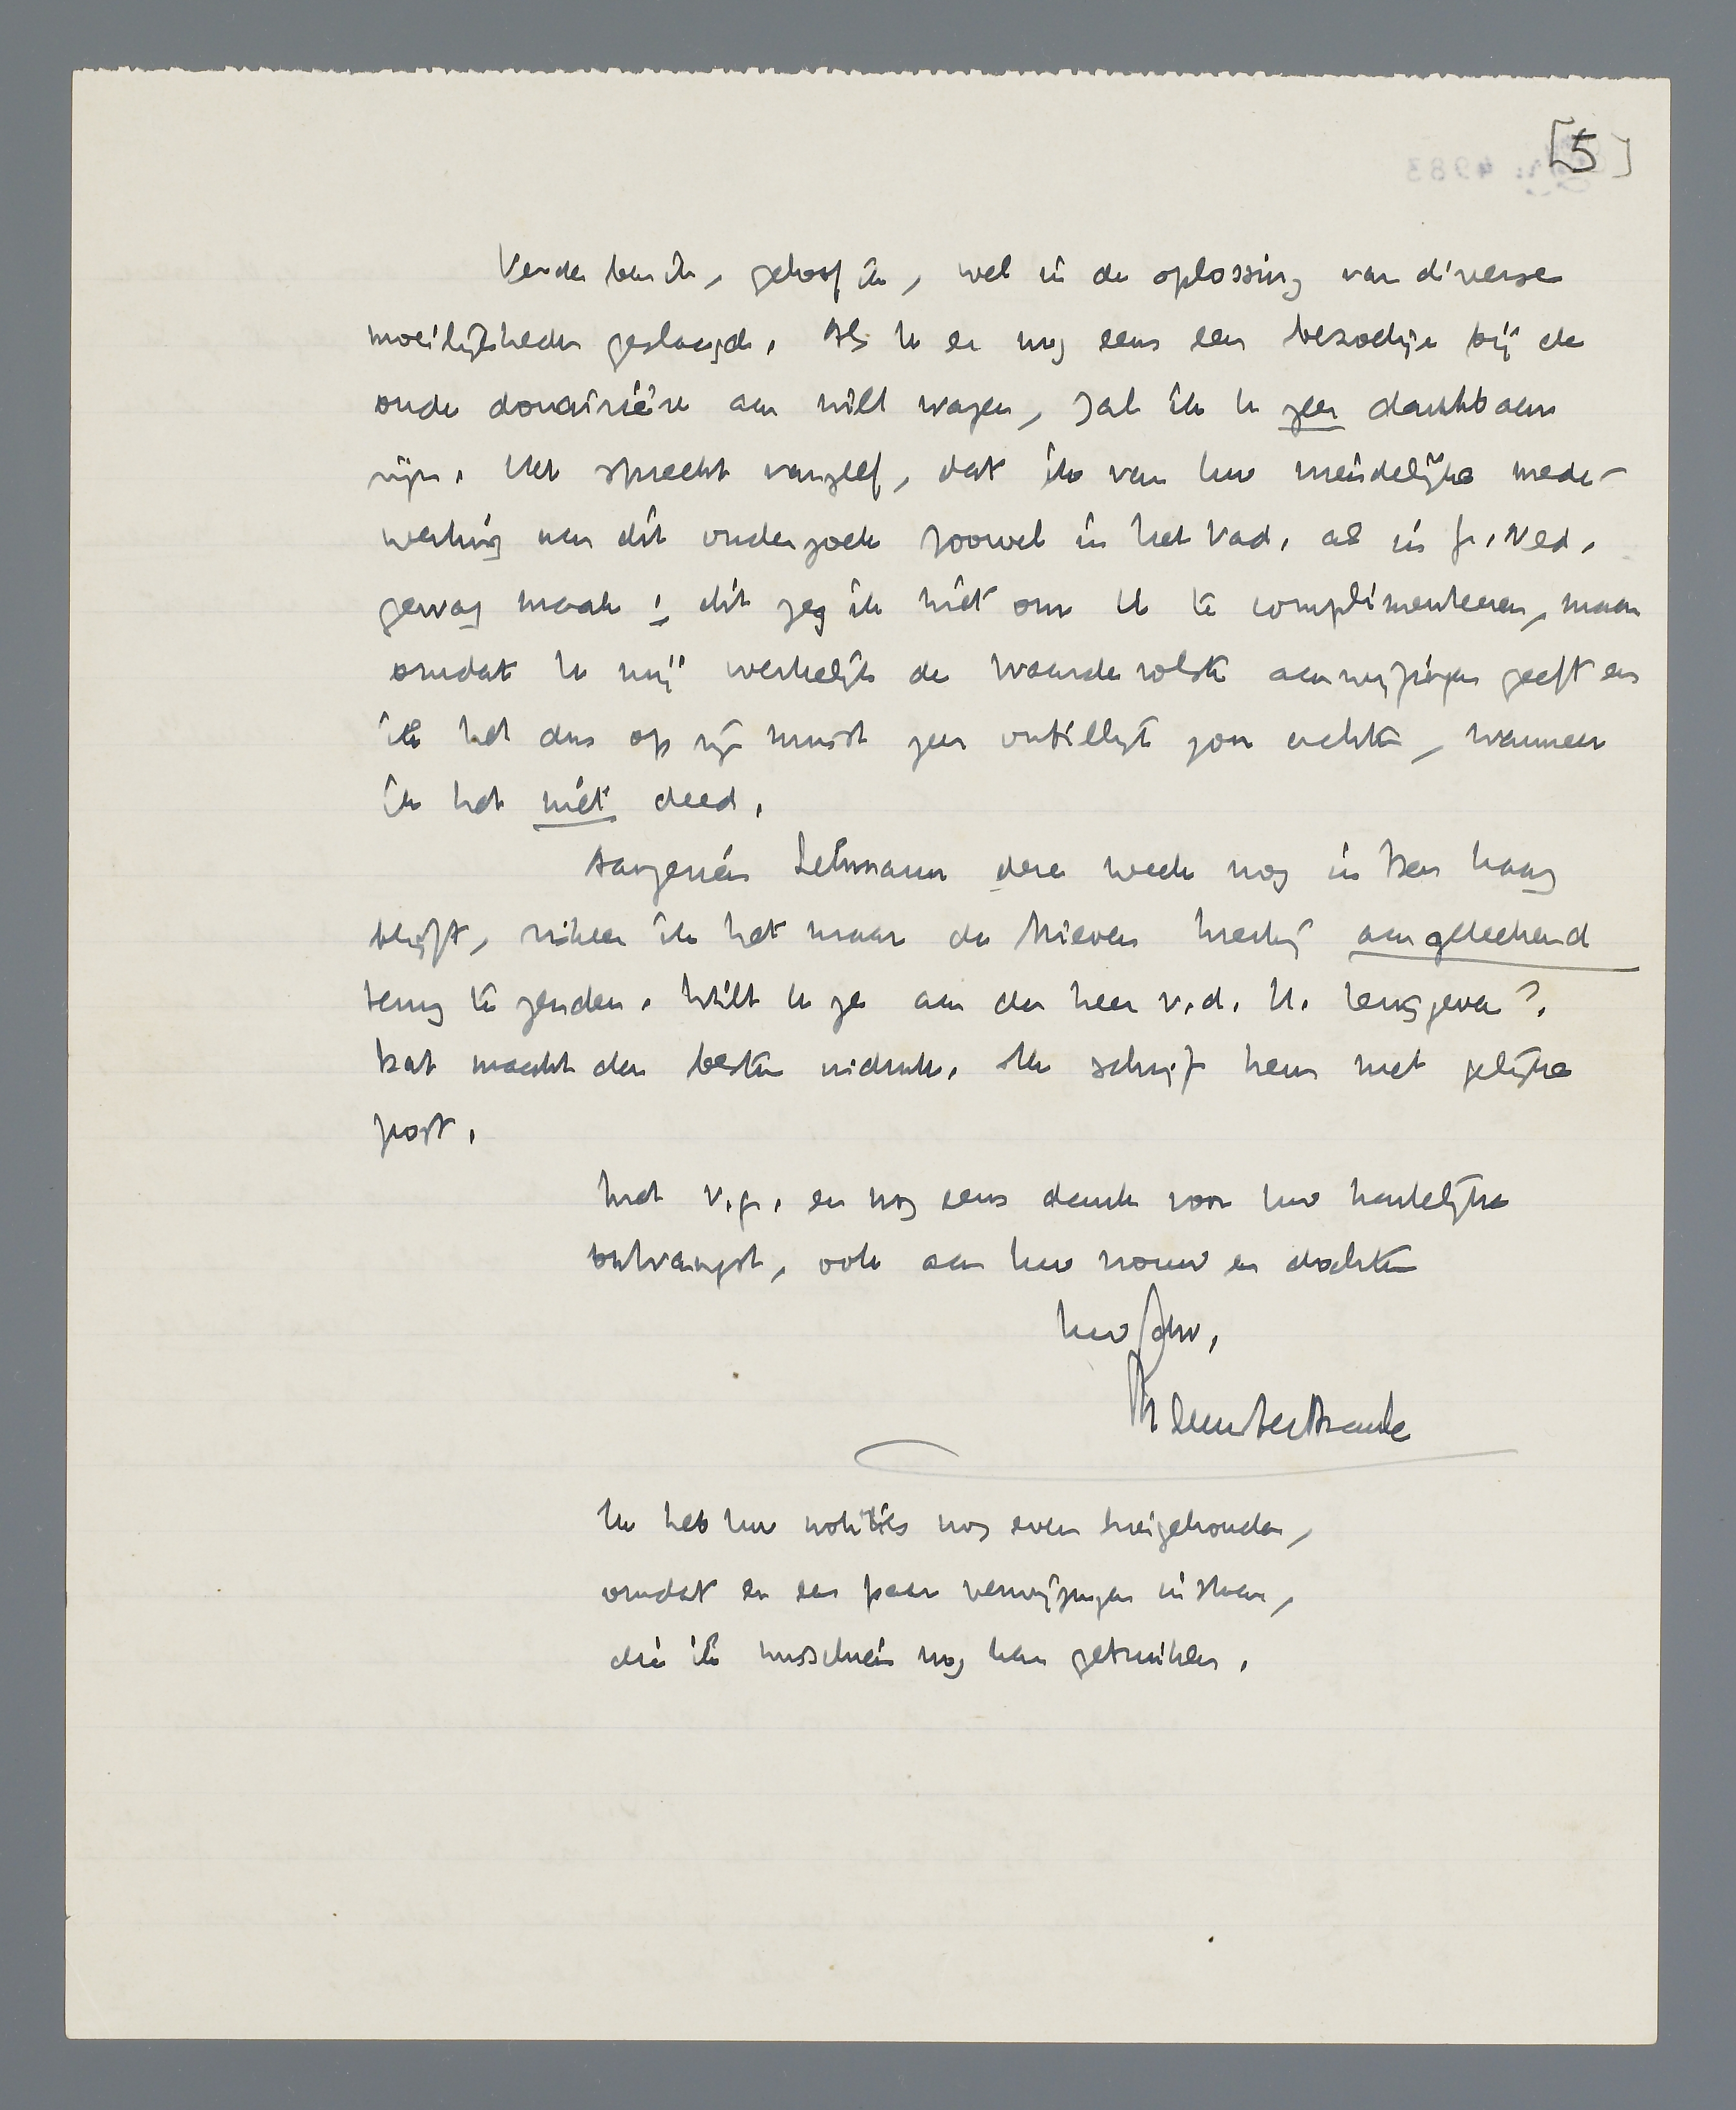 [5]
Verder ben ik, geloof ik, wel in de oplossing van diverse
moeilijkheden geslaagd. Als U er nog eens een bezoekje bij de
oude douairière aan wilt wagen, zal ik U zeer dankbaar
zijn. Het spreekt vanzelf, dat ik van Uw vriendelijke mede-
werking aan dit onderzoek zoowel in het Vad. als in Gr. Ned.
gewag maak; dit zeg ik niet om U te complimenteeren, maar
omdat U mij werkelijk de waardevolste aanwijzingen geeft en
ik het dus op zijn minst zeer onbillijk zou achten, wanneer
ik het niet deed.
Aangezien Lehmann deze week nog in Den Haag
blijft, riskeer ik het maar de brieven hierbij aangeteekend
terug te zenden. Wilt U ze aan den heer v.d. H. teruggeven?
Dat maakt den besten indruk. Ik schrijf hem met gelijke
post.
Met v.gr. en nog eens dank voor Uw hartelijke
ontvangst, ook aan Uw vrouw en dochter
Uw dw.
Menno ter Braak
Ik heb Uw notities nog even hiergehouden,
omdat er een paar verwijzingen in staan,
die ik misschien nog kan gebruiken.